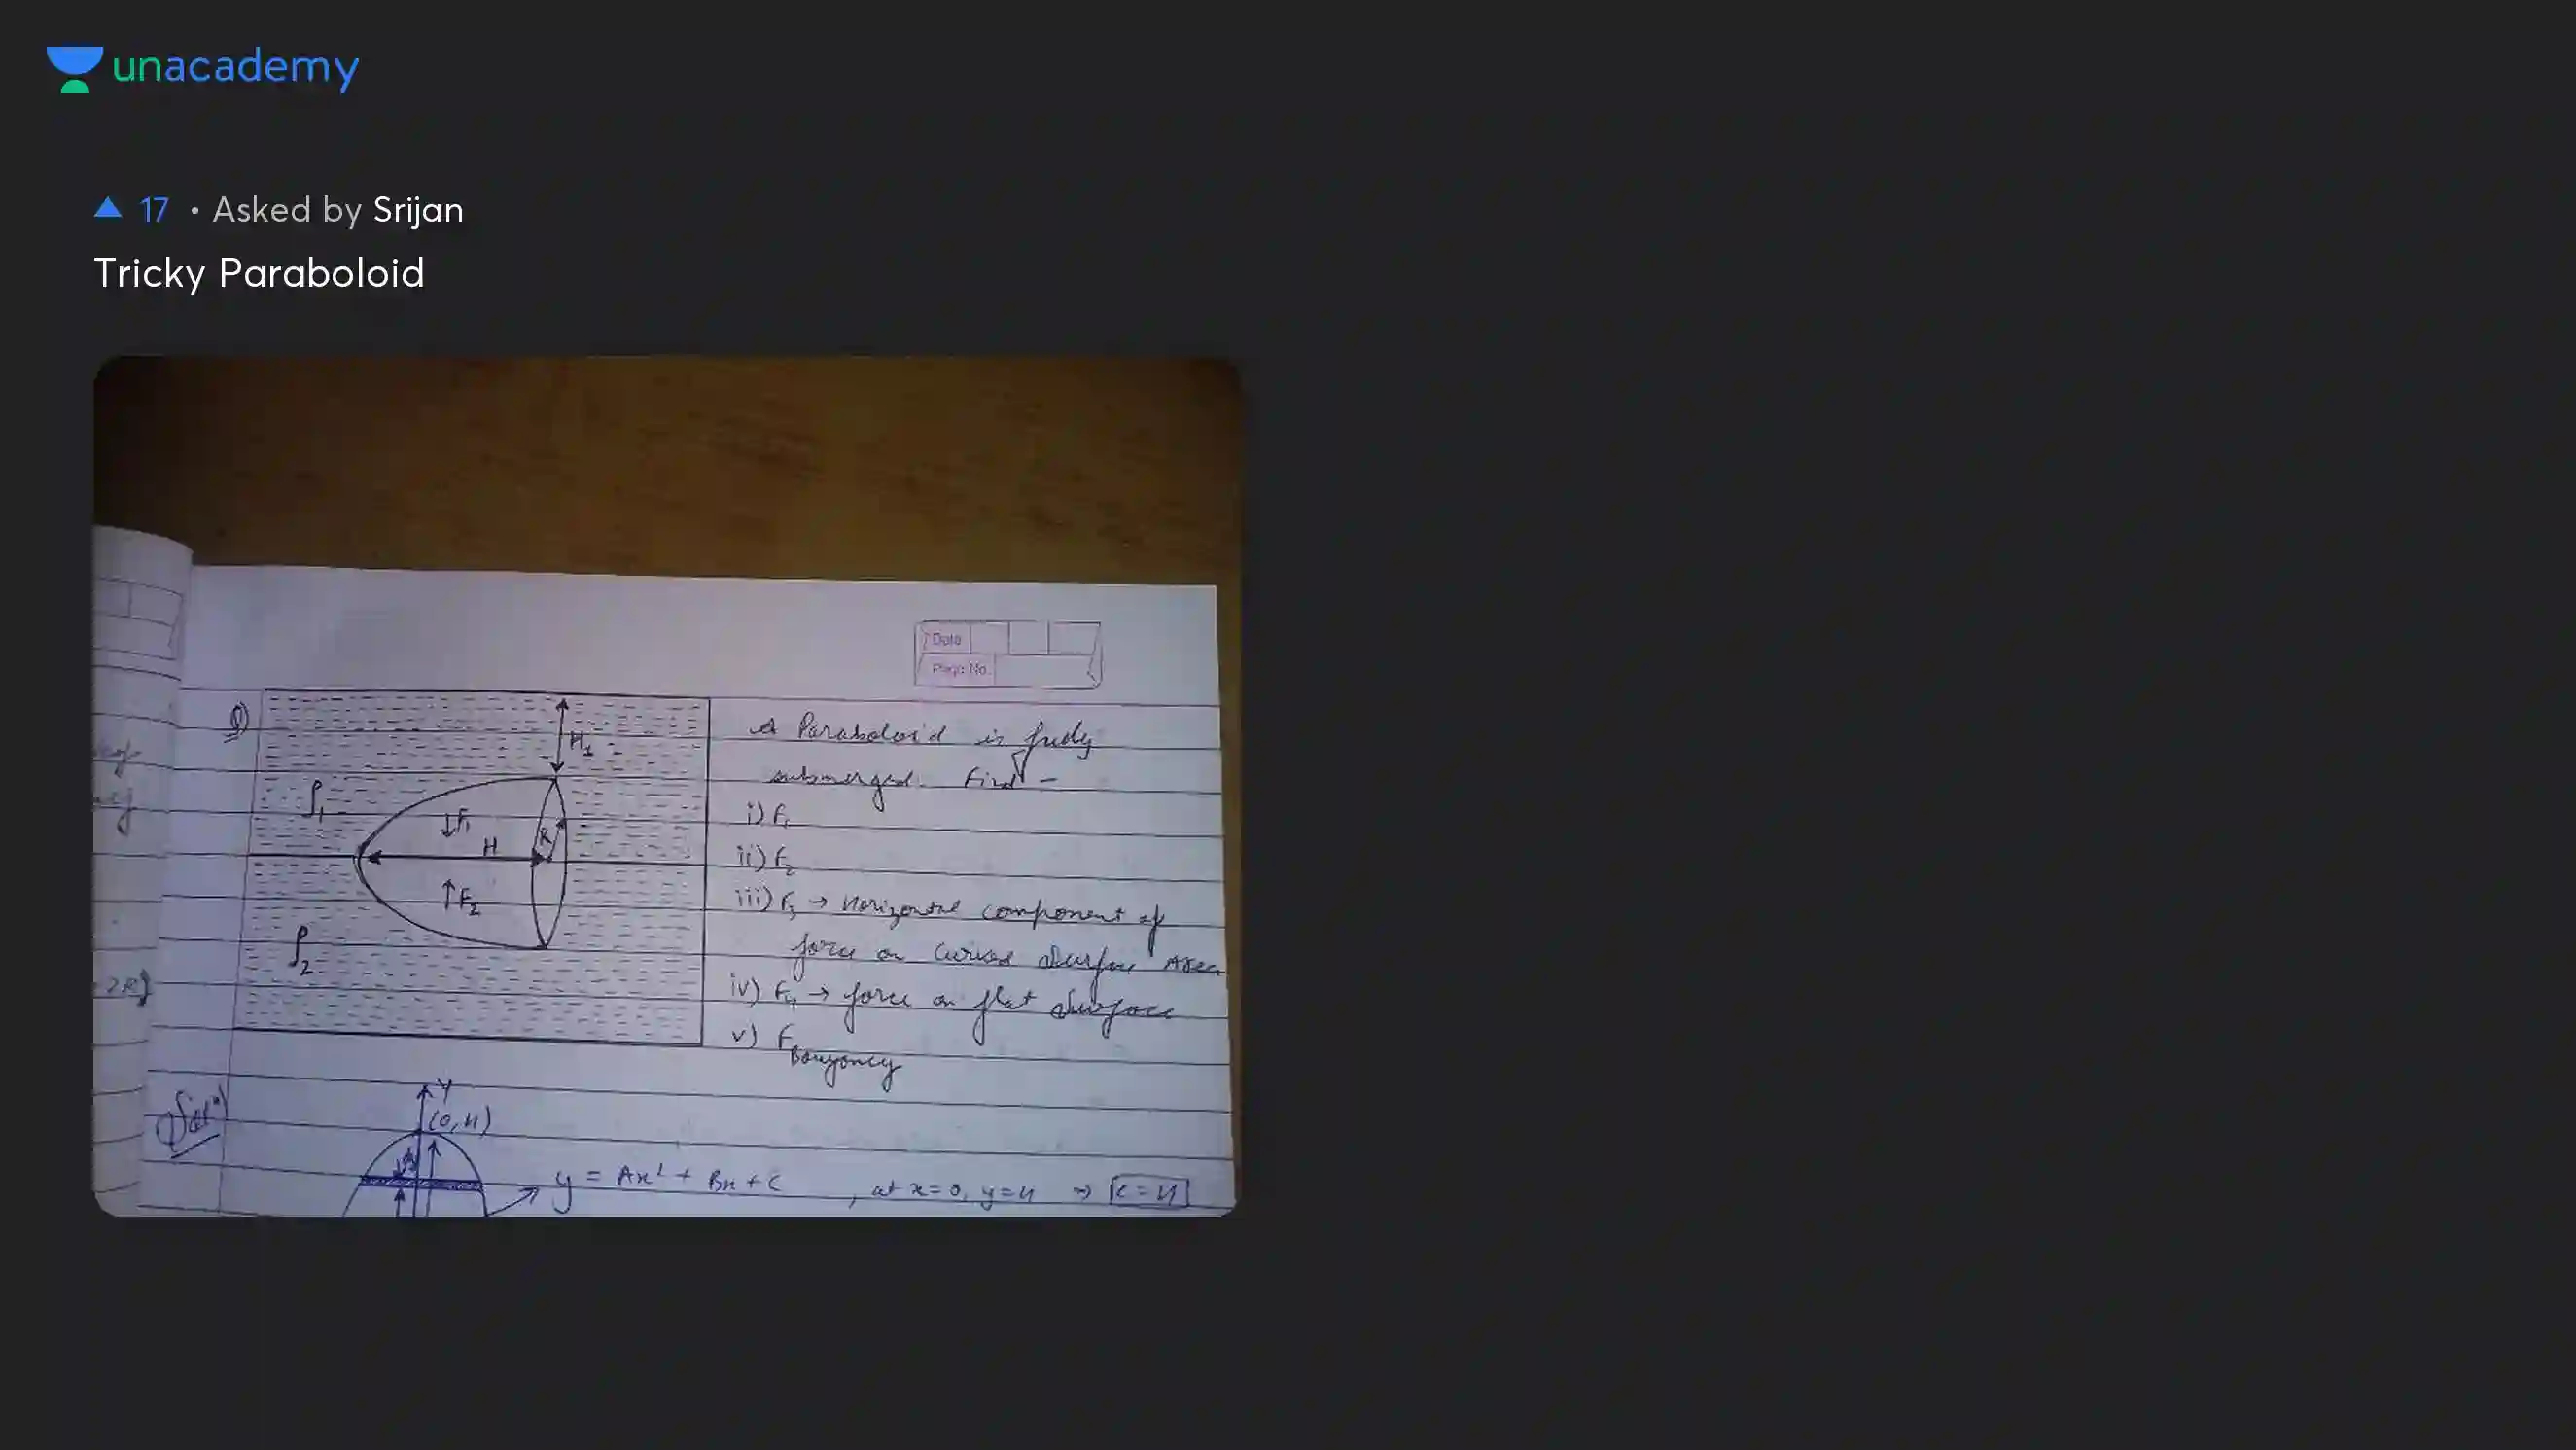 unacademy
17 • Asked by Srijan
Tricky Paraboloid
Date
Page No.
Q)
H1
A Paraboloid is fully
submerged. Find -
ρ1
F1
i) F1
H
R
ii) F2
F2
iii) F3 → Horizontal component of
force on Curved Surface Area
ρ2
iv) F4 → force on flat Surface
2R)
v) F Bouyoncy
Y
Sol^n)
(0,H)
dy
y = Ax² + Bx + C , at x=0, y=H ⇒ C = H